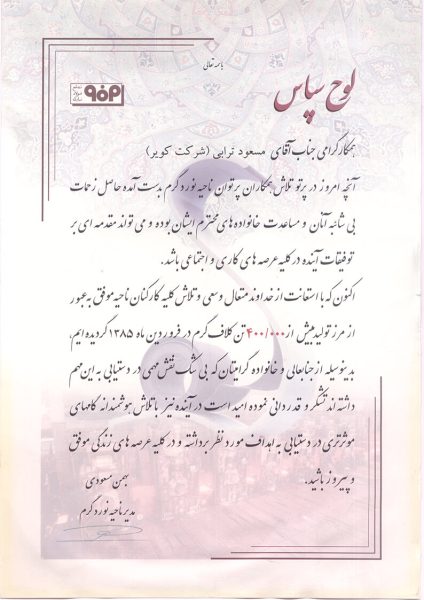 باسمه تعالی
لوح سپاس
همکار گرامی جناب آقای مسعود ترابی (شرکت کویر)
آنچه امروز در پرتو تلاش همکاران پرتوان ناحیه نورد گرم بدست آمده حاصل زحمات
بی شائبه آنان و مساعدت خانواده های محترم ایشان بوده و می تواند مقدمه ای بر
توفیقات آینده در کلیه عرصه های کاری و اجتماعی باشد.
اکنون که با استعانت از خداوند متعال وسعی و تلاش کلیه کارکنان ناحیه موفق به عبور
از مرز تولید بیش از ۴۰۰/۰۰۰ تن کلاف گرم در فروردین ماه ۱۳۸۵ گردیده ایم،
بدینوسیله از جنابعالی و خانواده گرامیتان که بی شک نقش مهمی در دستیابی به این مهم
داشته اند تشکر و قدردانی نموده امید است در آینده نیز با تلاش هوشمندانه گامهای
موثرتری در دستیابی به اهداف مورد نظر برداشته و در کلیه عرصه های زندگی موفق
و پیروز باشید.
بهمن مسعودی
مدیر ناحیه نورد گرم